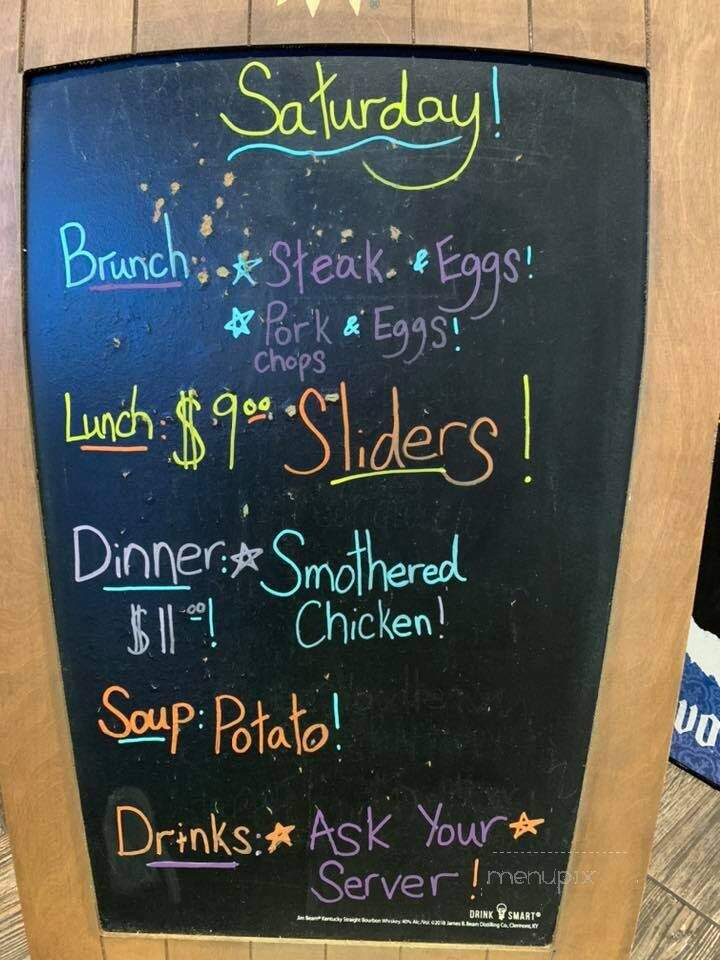 Saturday!
Brunch: Steak & Eggs!
Pork & Eggs!
Chops
Lunch: $9.00 Sliders!
Dinner: Smothered
$11.00! Chicken!
Soup: Potato!
Drinks: Ask Your
Server!
menupix
DRINK SMART®
Jim Beam® Kentucky Straight Bourbon Whiskey, 40% Alc./Vol. ©2018 James B. Beam Distilling Co., Clermont, KY